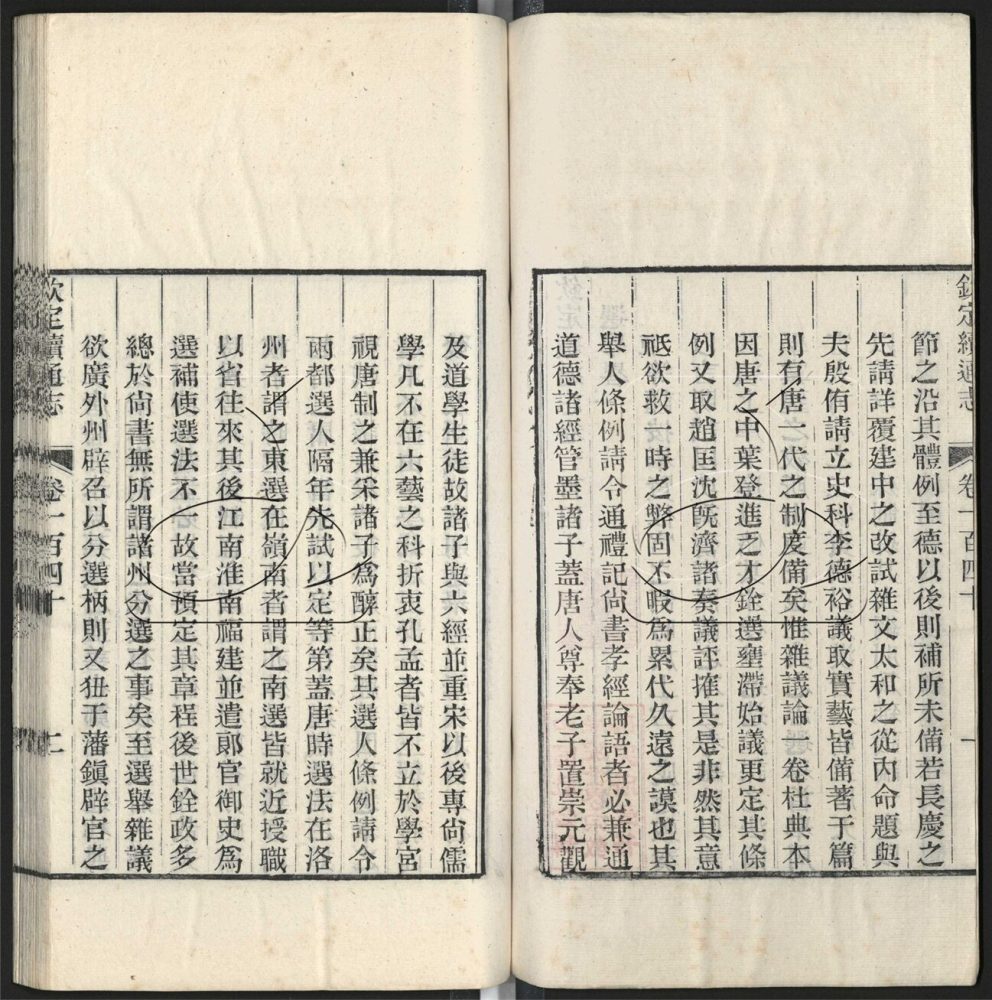 欽定續通志 卷一百四十 一
節之沿其體例至德以後則補所未備若長慶之
先請詳覆建中之改試雜文太和之從內命題與
夫殷侑請立史科李德裕議取實藝皆備著于篇
則有唐一代之制度備矣惟雜議論一卷杜典本
因唐之中葉登進乏才銓選壅滯始議更定其條
例又取趙匡沈旣濟諸奏議評搉其是非然其意
祗欲救一時之弊固不暇爲累代久遠之謨也其
舉人條例請令通禮記尙書孝經論語者必兼通
道德諸經管墨諸子蓋唐人尊奉老子置崇元觀
及道學生徒故諸子與六經並重宋以後專尙儒
學凡不在六藝之科折衷孔孟者皆不立於學宮
視唐制之兼采諸子爲醇正矣其選人條例請令
兩都選人隔年先試以定等第蓋唐時選法在洛
州者謂之東選在嶺南者謂之南選皆就近授職
以省往來其後江南淮南福建並遣郞官御史爲
選補使選法不一故當預定其章程後世銓政多
總於尙書無所謂諸州分選之事矣至選舉雜議
欲廣外州辟召以分選柄則又狃于藩鎭辟官之
欽定續通志 卷一百四十 二